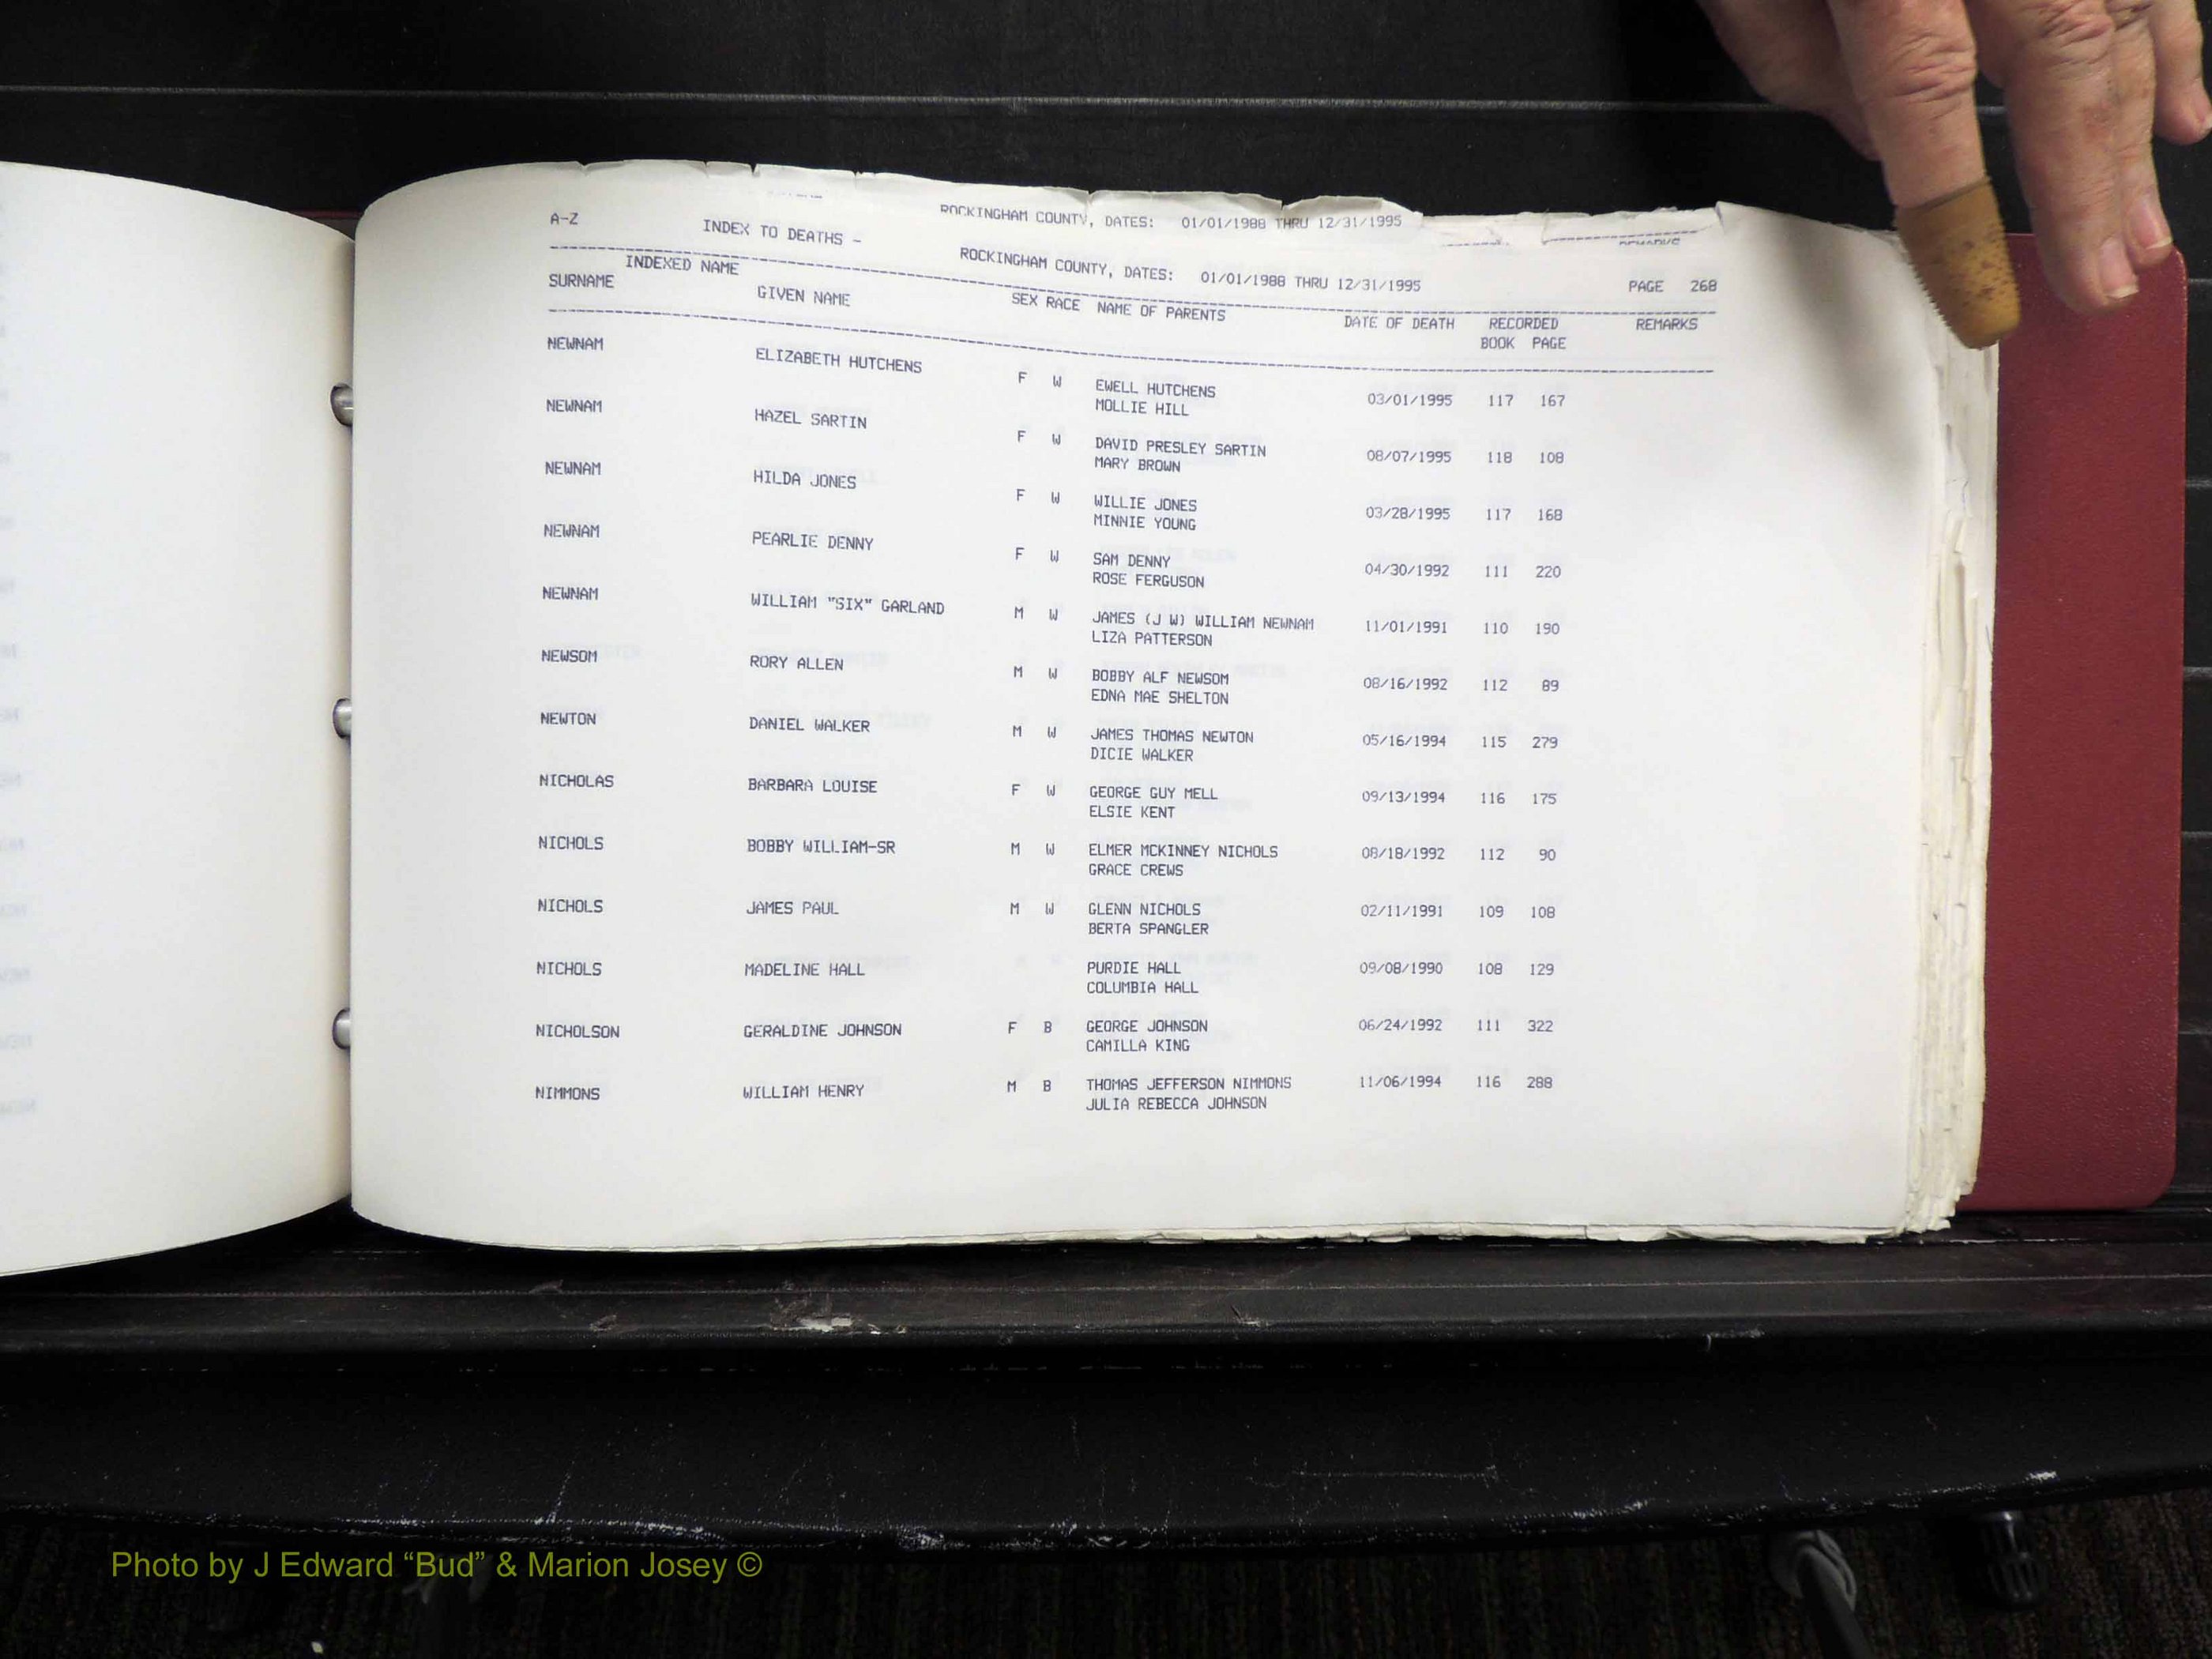 ROCKINGHAM COUNTY, DATES: 01/01/1988 THRU 12/31/1995
REMARKS
A-Z INDEX TO DEATHS - ROCKINGHAM COUNTY, DATES: 01/01/1988 THRU 12/31/1995 PAGE 268
INDEXED NAME
SURNAME GIVEN NAME SEX RACE NAME OF PARENTS DATE OF DEATH RECORDED REMARKS
BOOK PAGE
NEWNAM ELIZABETH HUTCHENS F W EWELL HUTCHENS 03/01/1995 117 167
MOLLIE HILL
NEWNAM HAZEL SARTIN F W DAVID PRESLEY SARTIN 08/07/1995 118 108
MARY BROWN
NEWNAM HILDA JONES F W WILLIE JONES 03/28/1995 117 168
MINNIE YOUNG
NEWNAM PEARLIE DENNY F W SAM DENNY 04/30/1992 111 220
ROSE FERGUSON
NEWNAM WILLIAM "SIX" GARLAND M W JAMES (J W) WILLIAM NEWNAM 11/01/1991 110 190
LIZA PATTERSON
NEWSOM RORY ALLEN M W BOBBY ALF NEWSOM 08/16/1992 112 89
EDNA MAE SHELTON
NEWTON DANIEL WALKER M W JAMES THOMAS NEWTON 05/16/1994 115 279
DICIE WALKER
NICHOLAS BARBARA LOUISE F W GEORGE GUY MELL 09/13/1994 116 175
ELSIE KENT
NICHOLS BOBBY WILLIAM-SR M W ELMER MCKINNEY NICHOLS 08/18/1992 112 90
GRACE CREWS
NICHOLS JAMES PAUL M W GLENN NICHOLS 02/11/1991 109 108
BERTA SPANGLER
NICHOLS MADELINE HALL PURDIE HALL 09/08/1990 108 129
COLUMBIA HALL
NICHOLSON GERALDINE JOHNSON F B GEORGE JOHNSON 06/24/1992 111 322
CAMILLA KING
NIMMONS WILLIAM HENRY M B THOMAS JEFFERSON NIMMONS 11/06/1994 116 288
JULIA REBECCA JOHNSON
Photo by J Edward “Bud” & Marion Josey ©